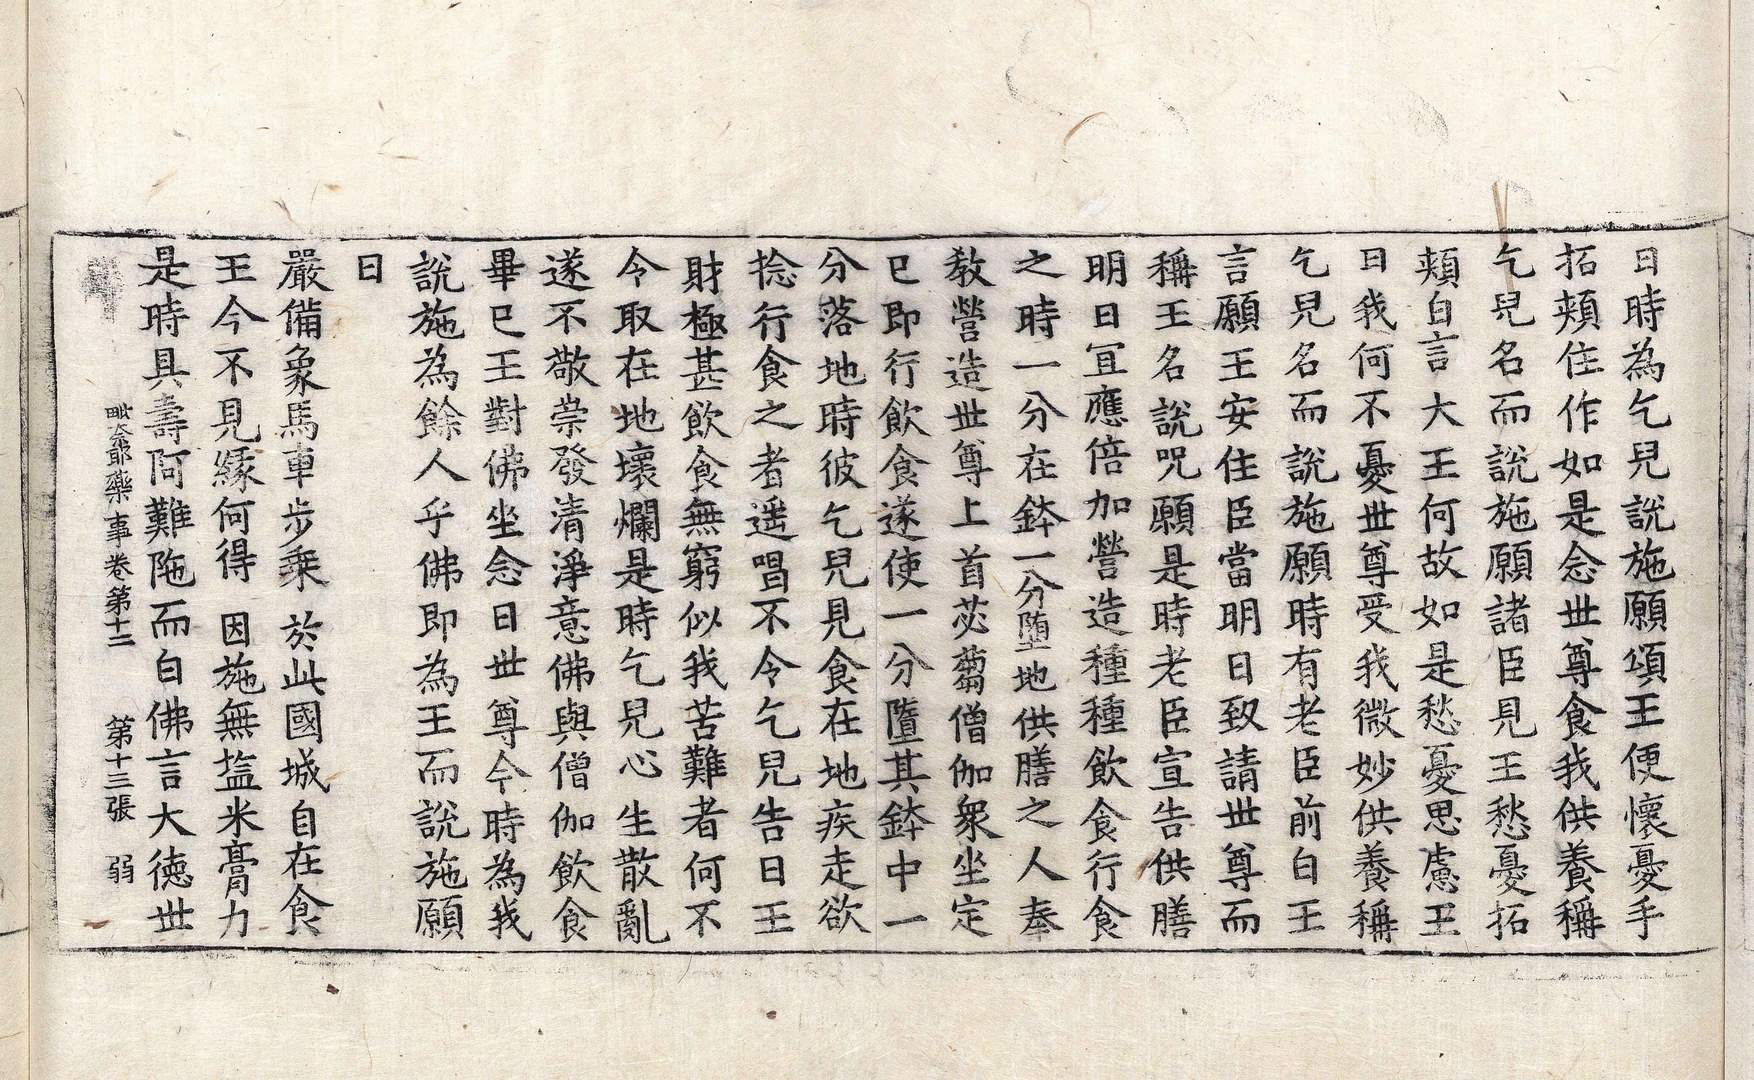 日時為乞兒說施願頌王便懷憂手
拓頰住作如是念世尊食我供養稱
乞兒名而說施願諸臣見王愁憂拓
頰白言大王何故如是愁憂思慮王
曰我何不憂世尊受我微妙供養稱
乞兒名而說施願時有老臣前白王
言願王安住臣當明日致請世尊而
稱王名說呪願是時老臣宣告供膳
明日冝應倍加營造種種飲食行食
之時一分在鉢一分墮地供膳之人奉
教營造世尊上首苾蒭僧伽衆坐定
已即行飲食遂使一分墮其鉢中一
分落地時彼乞兒見食在地疾走欲
捻行食之者遥唱不令乞兒告曰王
財極甚飲食無窮似我苦難者何不
令取在地壞爛是時乞兒心生散亂
遂不敬崇發清淨意佛與僧伽飲食
畢已王對佛坐念曰世尊今時為我
說施為餘人乎佛即為王而說施願
曰
嚴備象馬車步乘 於此國城自在食
王今不見緣何得 因施無塩米膏力
是時具壽阿難陁而白佛言大德世
毗奈耶藥事卷第十二 第十三張 弱